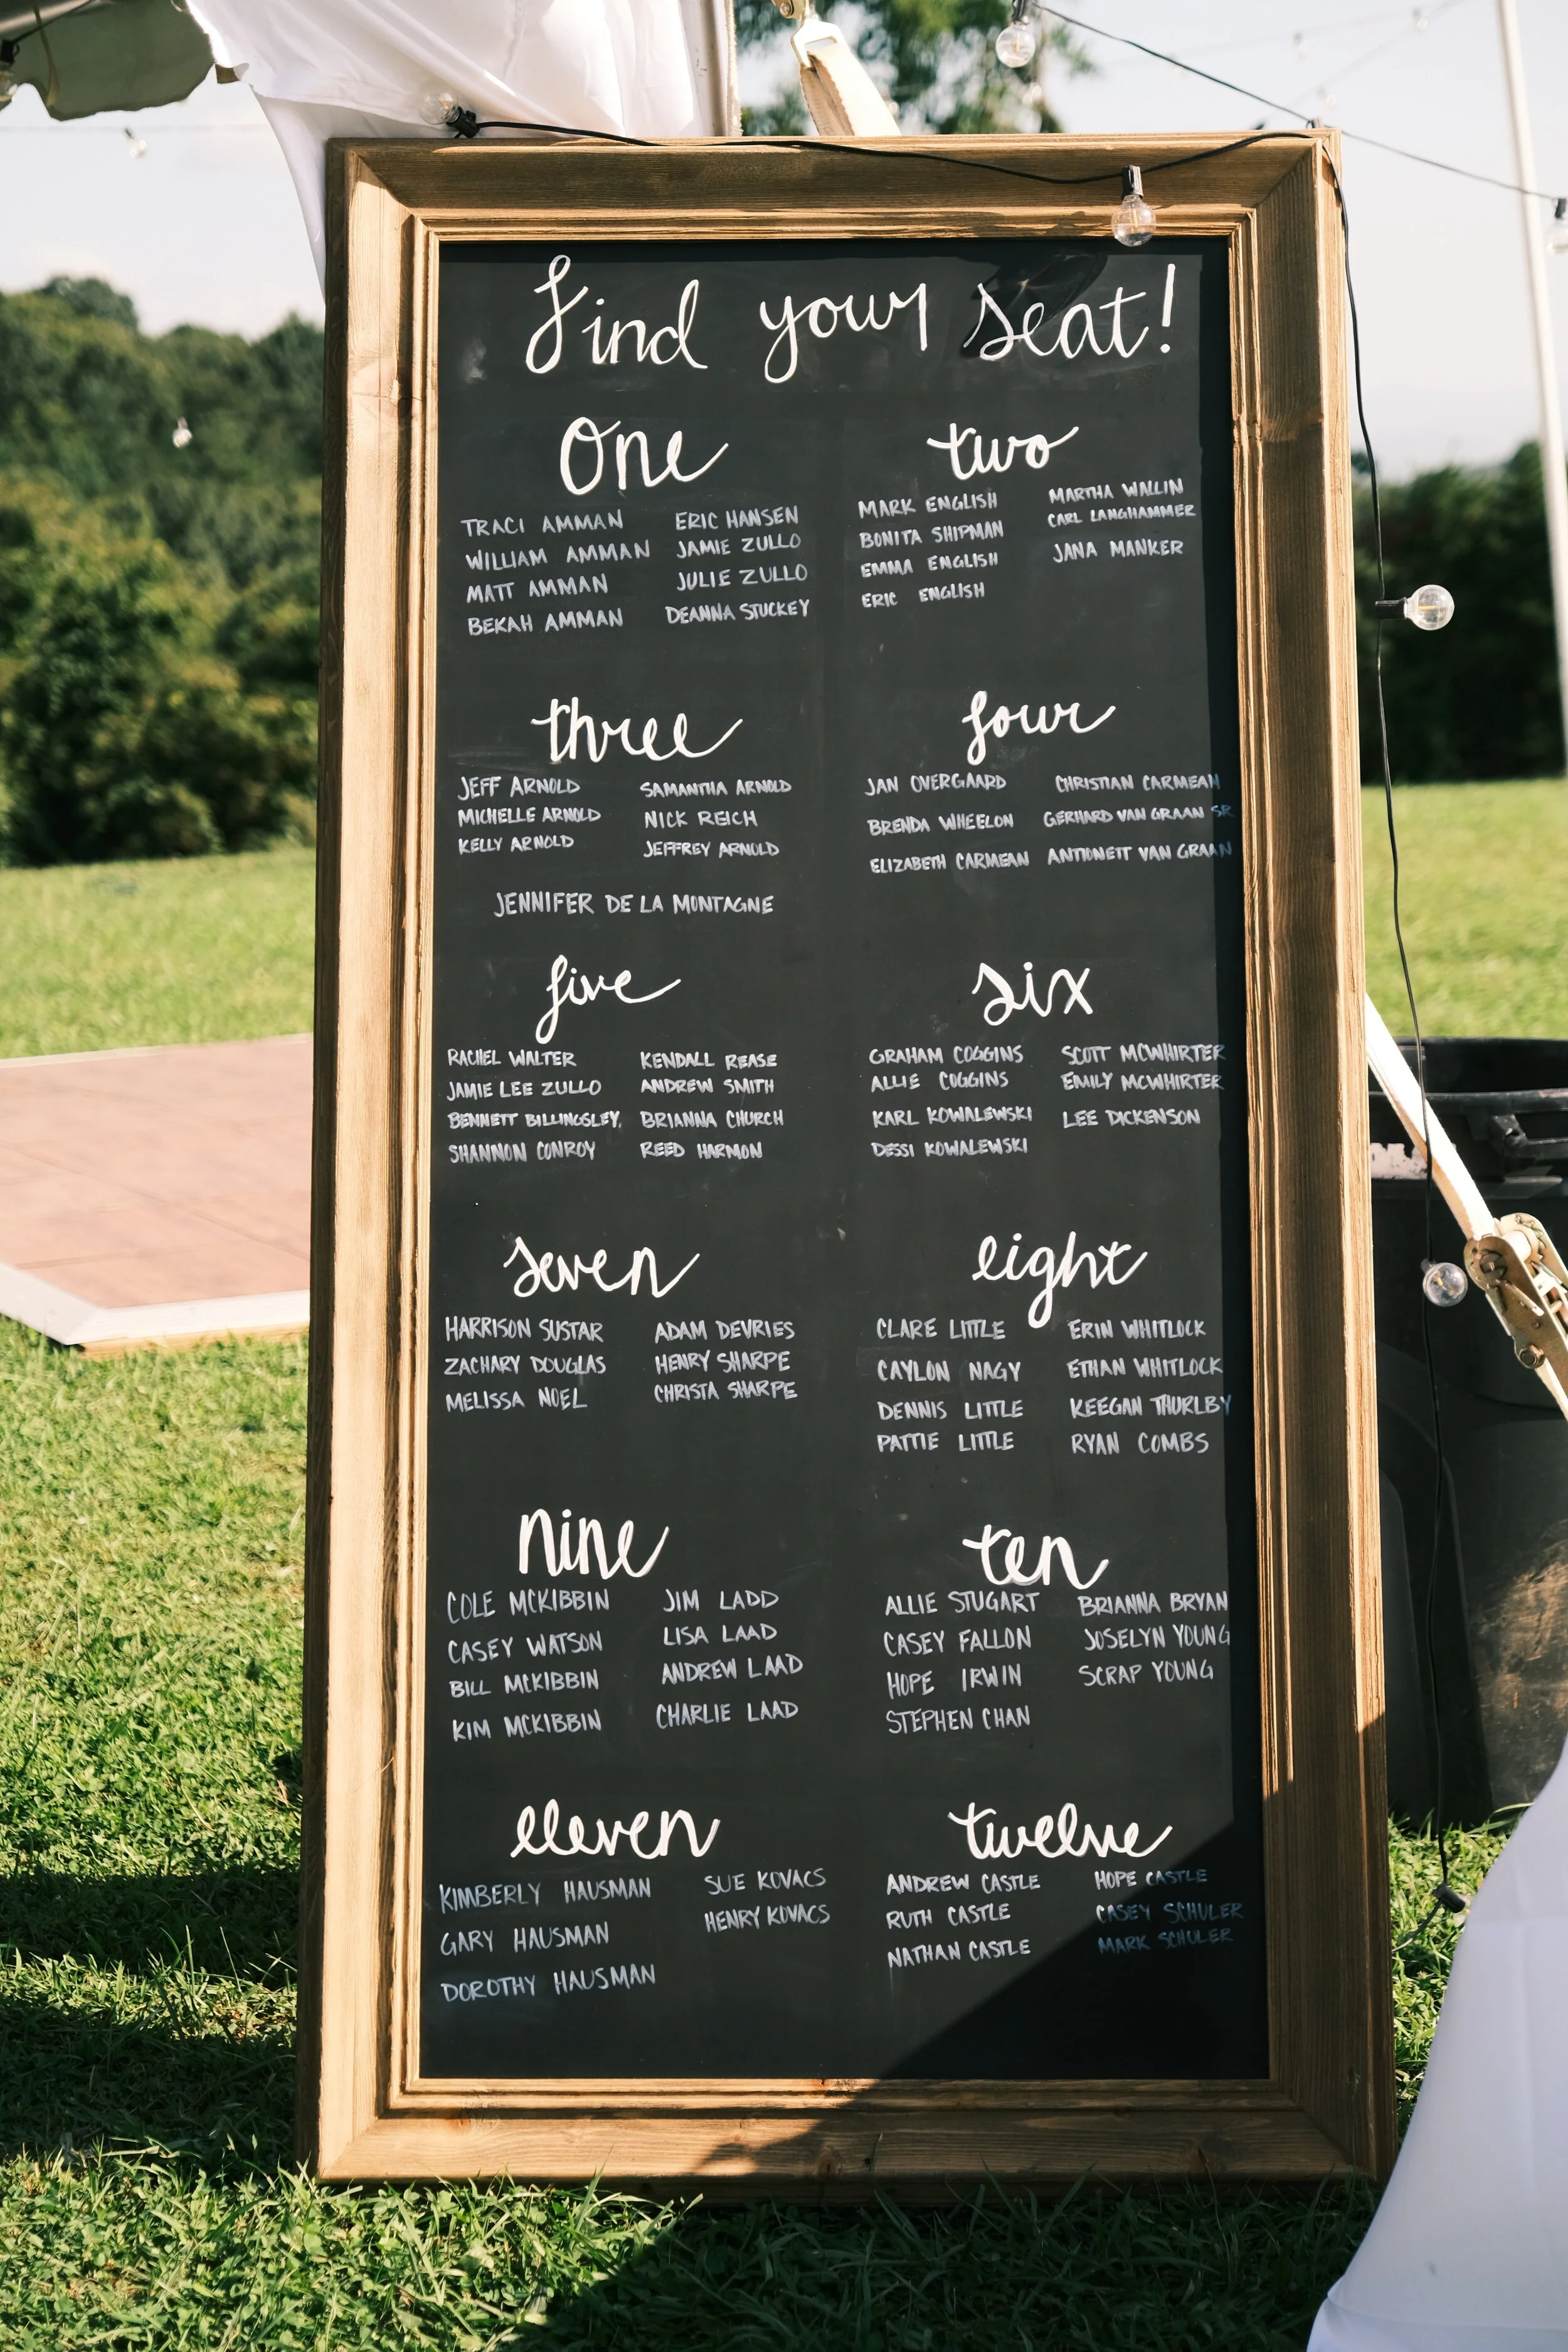 Find your seat!
One
TRACI AMMAN
WILLIAM AMMAN
MATT AMMAN
BEKAH AMMAN
ERIC HANSEN
JAMIE ZULLO
JULIE ZULLO
DEANNA STUCKEY
two
MARK ENGLISH
BONITA SHIPMAN
EMMA ENGLISH
ERIC ENGLISH
MARTHA WALLIN
CARL LANGHAMMER
JANA MANKER
three
JEFF ARNOLD
MICHELLE ARNOLD
KELLY ARNOLD
SAMANTHA ARNOLD
NICK REICH
JEFFREY ARNOLD
JENNIFER DE LA MONTAGNE
four
JAN OVERGAARD
BRENDA WHEELON
ELIZABETH CARMEAN
CHRISTIAN CARMEAN
GERHARD VAN GRAAN SR
ANTIONETT VAN GRAAN
five
RACHEL WALTER
JAMIE LEE ZULLO
BENNETT BILLINGSLEY
SHANNON CONROY
KENDALL REASE
ANDREW SMITH
BRIANNA CHURCH
REED HARMON
six
GRAHAM COGGINS
ALLIE COGGINS
KARL KOWALEWSKI
DESSI KOWALEWSKI
SCOTT MCWHIRTER
EMILY MCWHIRTER
LEE DICKENSON
seven
HARRISON SUSTAR
ZACHARY DOUGLAS
MELISSA NOEL
ADAM DEVRIES
HENRY SHARPE
CHRISTA SHARPE
eight
CLARE LITTLE
CAYLON NAGY
DENNIS LITTLE
PATTIE LITTLE
ERIN WHITLOCK
ETHAN WHITLOCK
KEEGAN THURLBY
RYAN COMBS
nine
COLE MCKIBBIN
CASEY WATSON
BILL MCKIBBIN
KIM MCKIBBIN
JIM LADD
LISA LAAD
ANDREW LAAD
CHARLIE LAAD
ten
ALLIE STUGART
CASEY FALLON
HOPE IRWIN
STEPHEN CHAN
BRIANNA BRYAN
JOSELYN YOUNG
SCRAP YOUNG
eleven
KIMBERLY HAUSMAN
GARY HAUSMAN
DOROTHY HAUSMAN
SUE KOVACS
HENRY KOVACS
twelve
ANDREW CASTLE
RUTH CASTLE
NATHAN CASTLE
HOPE CASTLE
CASEY SCHULER
MARK SCHULER